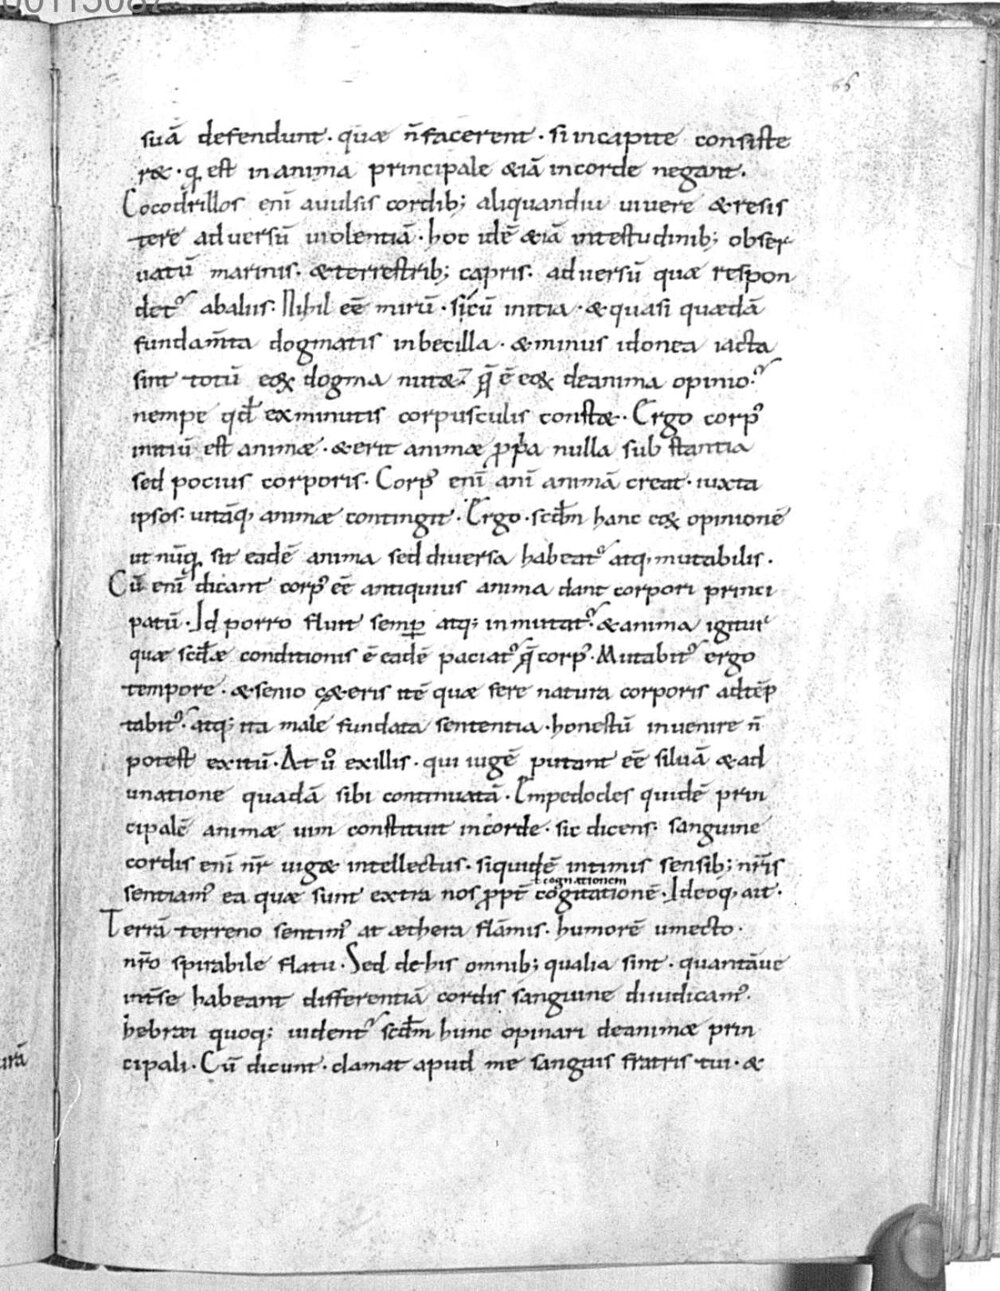 00115087
66
suā defendunt · quæ n̄ facerent · si in capite consiste
r& · q̢ est in anima principale &iā in corde negant.
Cocodrillos enī auulsis cordib; aliquandiu uiuere & resis
tere aduersū uiolentiā · hoc idē &iā in testudinib; obser
uatū marinis · & terrestrib; capris · aduersū quæ respon
det᷒ abalus · Nihil eē mirū · si cū initia · & quasi quædā
fundam̄ta dogmatis inbecilla · & minus idonea iacta
sint totū eoꝝ dogma nut&· q̄ ē eoꝝ de anima opinio·
nempe qd̄ ex minutis corpusculis const& · Ergo corp᷒
initiū est animæ · & erit animæ ꝓp̄a nulla substantia
sed pocius corporis · Corp᷒ enī anī animā creat · iuxta
ipsos · uitāq, animæ contingit · Ergo · scd̄m hanc eoꝝ opinionē
ut nūq̢ sit eadē anima sed diuersa habeat᷒ atq, mutabilis ·
Cū enī dicant corp᷒ eē antiquius anima dant corpori princi
patū · Id porro fluit semꝑ atq; inmutat᷒ · & anima igitur
quæ scd̄æ conditionis ē eadē paciat᷒ q̄ corp᷒ · Mutabit᷒ ergo
tempore · & senio c&eris itē quæ fere natura corporis adtēp
tabit᷒ · atq; ita male fundata sententia · honestū inuenire n̄
potest exitū · At u᷒ ex illis · qui iugē putant eē siluā & ad
unatione quadā sibi continuatā · Empedocles quidē prin
cipalē animæ uim constituit in corde · sic dicens · sanguine
cordis enī nr̄ uig& intellectus · siquidē intimis sensib; nr̄is
ł cognationem
sentiam᷒ ea quæ sunt extra nos ꝓpt̄ cogitationē · Ideoq, ait ·
Terrā terreno sentim᷒ at æthera flāmis · humorē umecto ·
nr̄o spirabile flatu · Sed de his omnib; qualia sint · quantāue
int̄se habeant differentiā cordis sanguine diiudicam᷒ ·
hebræi quoq; uident᷒ scd̄m hunc opinari de animæ prin
cipali · Cū dicunt · clamat apud me sanguis fratris tui · &